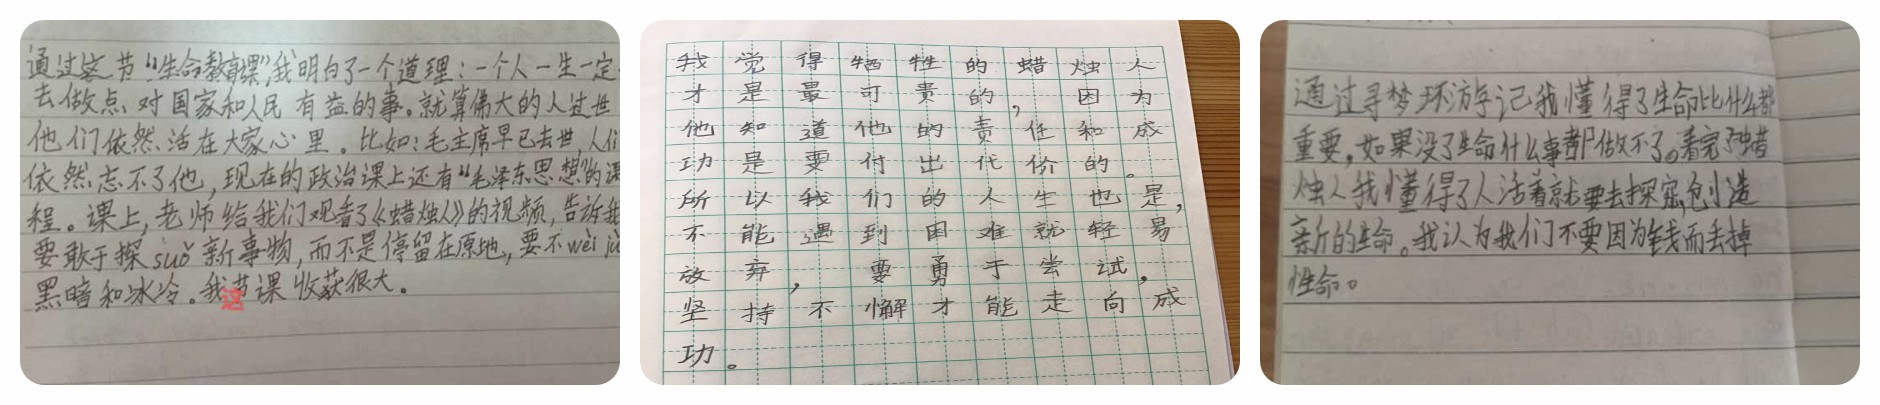 通过这节“生命教育课”我明白了一个道理：一个人一生一定
去做点对国家和人民有益的事。就算伟大的人过世
他们依然活在大家心里。比如：毛主席早已去世，人们
依然忘不了他，现在的政治课上还有“毛泽东思想”的课
程。课上，老师给我们观看了《蜡烛人》的视频，告诉我
要敢于探suǒ新事物，而不是停留在原地，要不wèi jù
黑暗和冰冷。我节课收获很大。
这
我觉得牺牲的蜡烛人
才是最可贵的，因为
他知道他的责任和成
功是要付出代价的。
所以我们的人生也是，
不能遇到困难就轻易
放弃，要勇于尝试，
坚持不懈才能走向成
功。
通过寻梦环游记我懂得了生命比什么都
重要，如果没了生命什么事都做不了。看完了蜡
烛人我懂得了人活着就要去探究，创造
新的生命。我认为我们不要因为钱而去掉
性命。